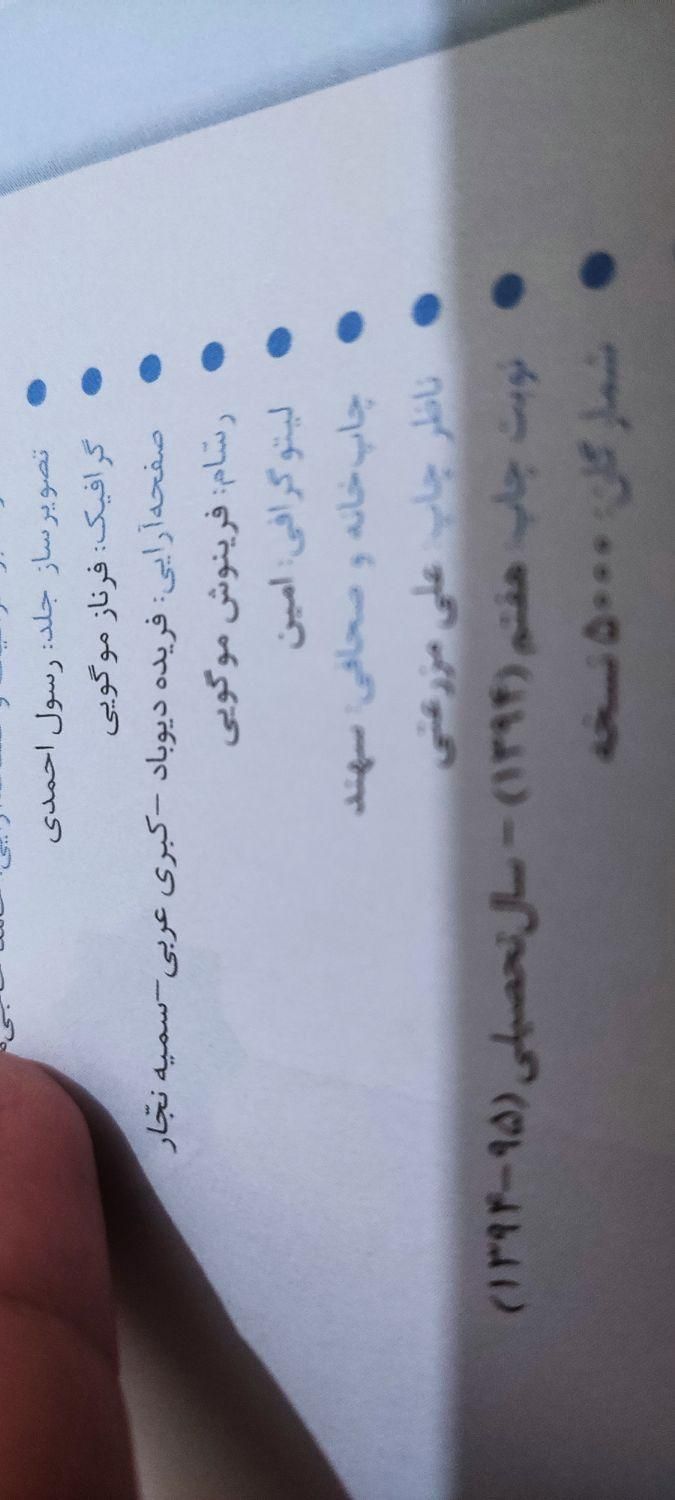 تصویرساز جلد: رسول احمدی
گرافیک: فرناز موگویی
صفحه‌آرایی: فریده دیوباد - کبری عربی - سمیه نجّار
رسّام: فرینوش موگویی
لیتوگرافی: امین
چاپ‌خانه و صحافی: سهند
ناظر چاپ: علی مزرعتی
نوبت چاپ: هفتم (۱۳۹۴) - سال تحصیلی (۹۵-۱۳۹۴)
شمارگان: ۵۰۰۰ نسخه